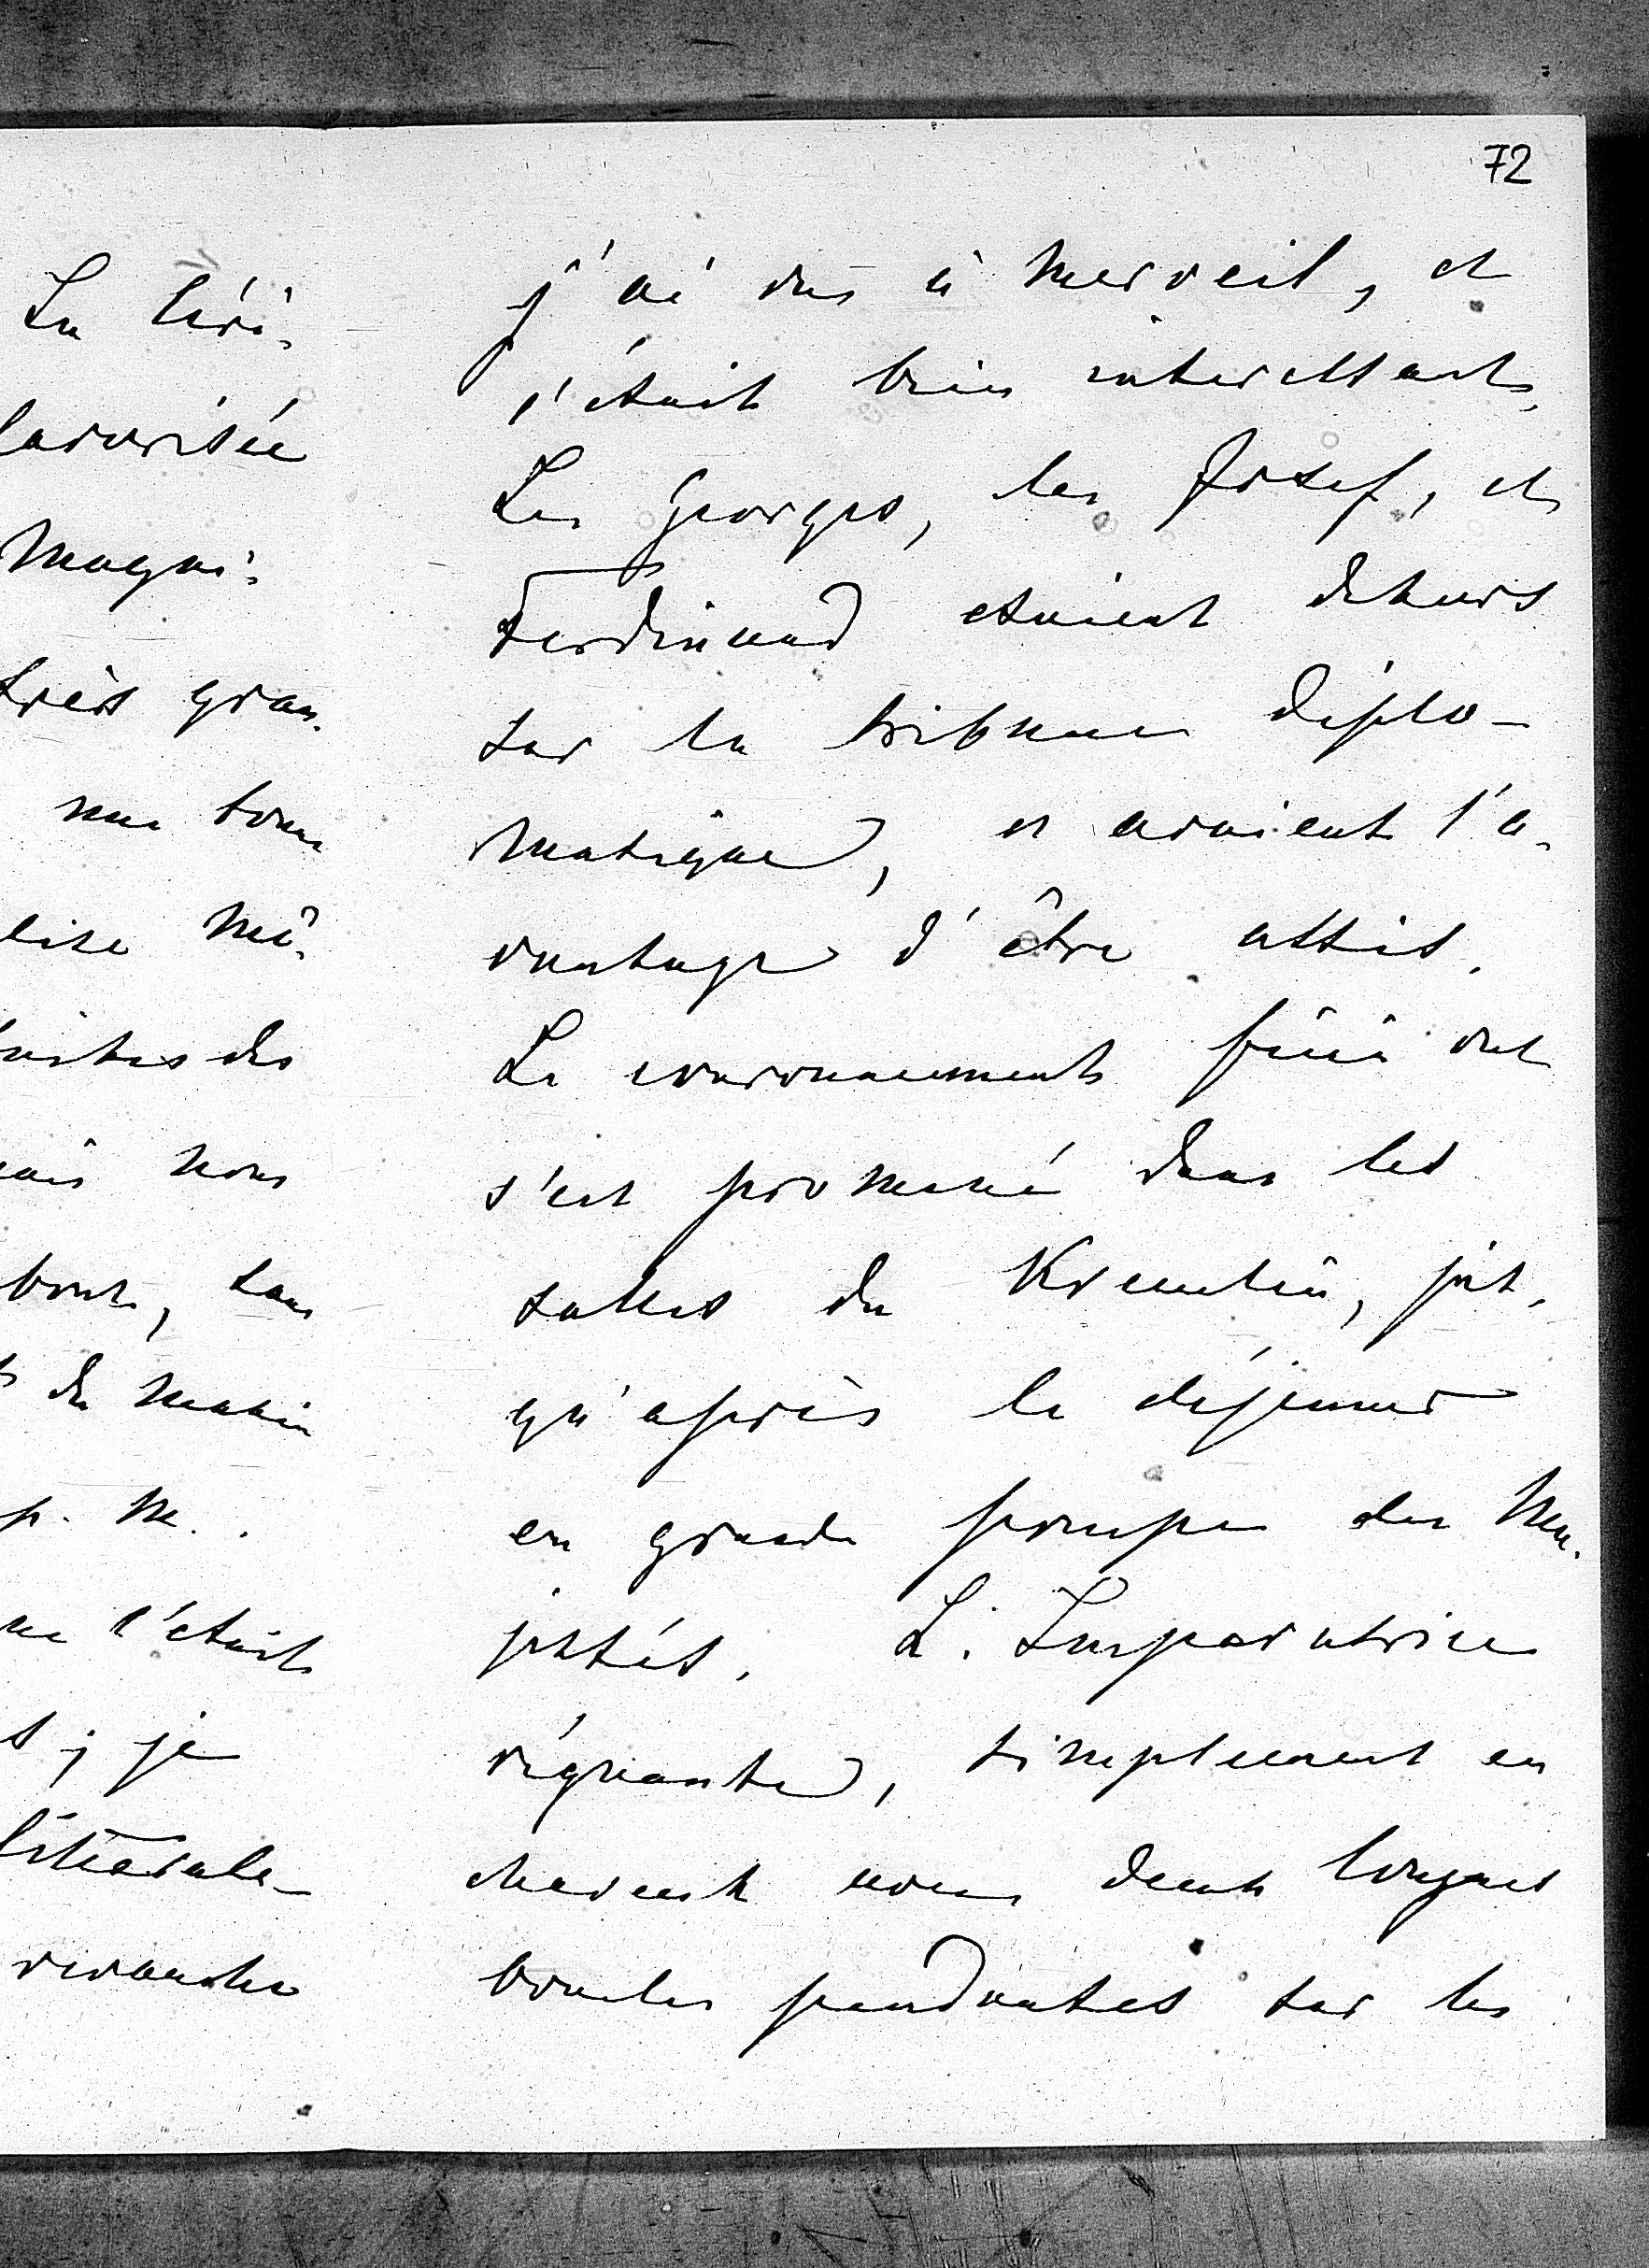 72
La céré-
favorisée
magni-
très gran-
une bonne
lise mê-
suites des
mais nous
bout, sans
du matin
p. m..
me c'était
s ; je
littérale-
revanche
j'ai vus à merveil, et
c'était bien interessant.
Les Georges, les Josef, et
Ferdinand etaient dehors
sur la tribune diplo-
matique, et avaient l'a-
vantage d'être assis.
Le couronnement fini on
s'est promené dans les
salles du Kremlin, jus-
qu'après le déjeuner
en grande pompe des Ma-
jestés. L. Imperatrice
régnante, simplement en
cheveux avec deux longues
boucles pendantes sur les